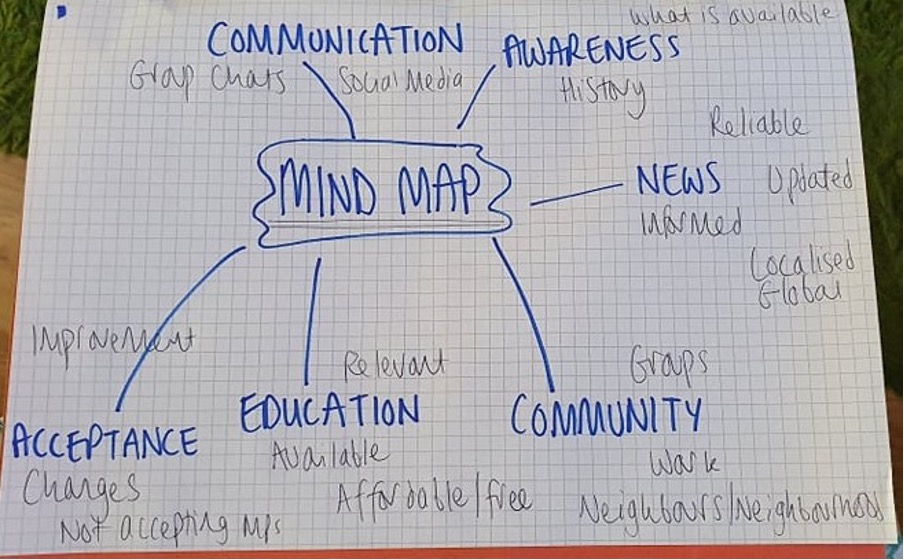 What is available
COMMUNICATION
AWARENESS
Group Chats
Social Media
History
Reliable
MIND MAP
NEWS
Updated
Informed
Localised
Global
Improvement
Relevant
Groups
ACCEPTANCE
EDUCATION
COMMUNITY
Changes
Available
Work
Not accepting MPs
Affordable/free
Neighbours/Neighbourhood